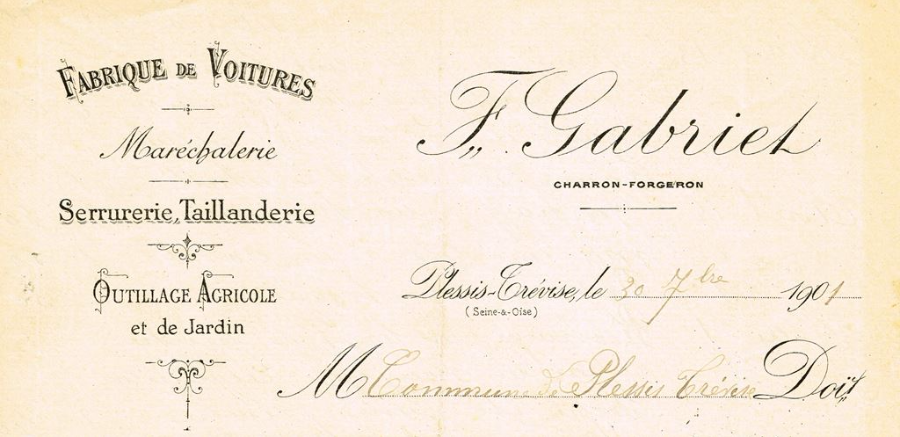 FABRIQUE DE VOITURES
Maréchalerie
Serrurerie, Taillanderie
OUTILLAGE AGRICOLE
et de Jardin
F. Gabriel
CHARRON-FORGERON
Plessis-Trévise, le 30 7bre 1901
(Seine-&-Oise)
M Commune de Plessis Trévise Doit